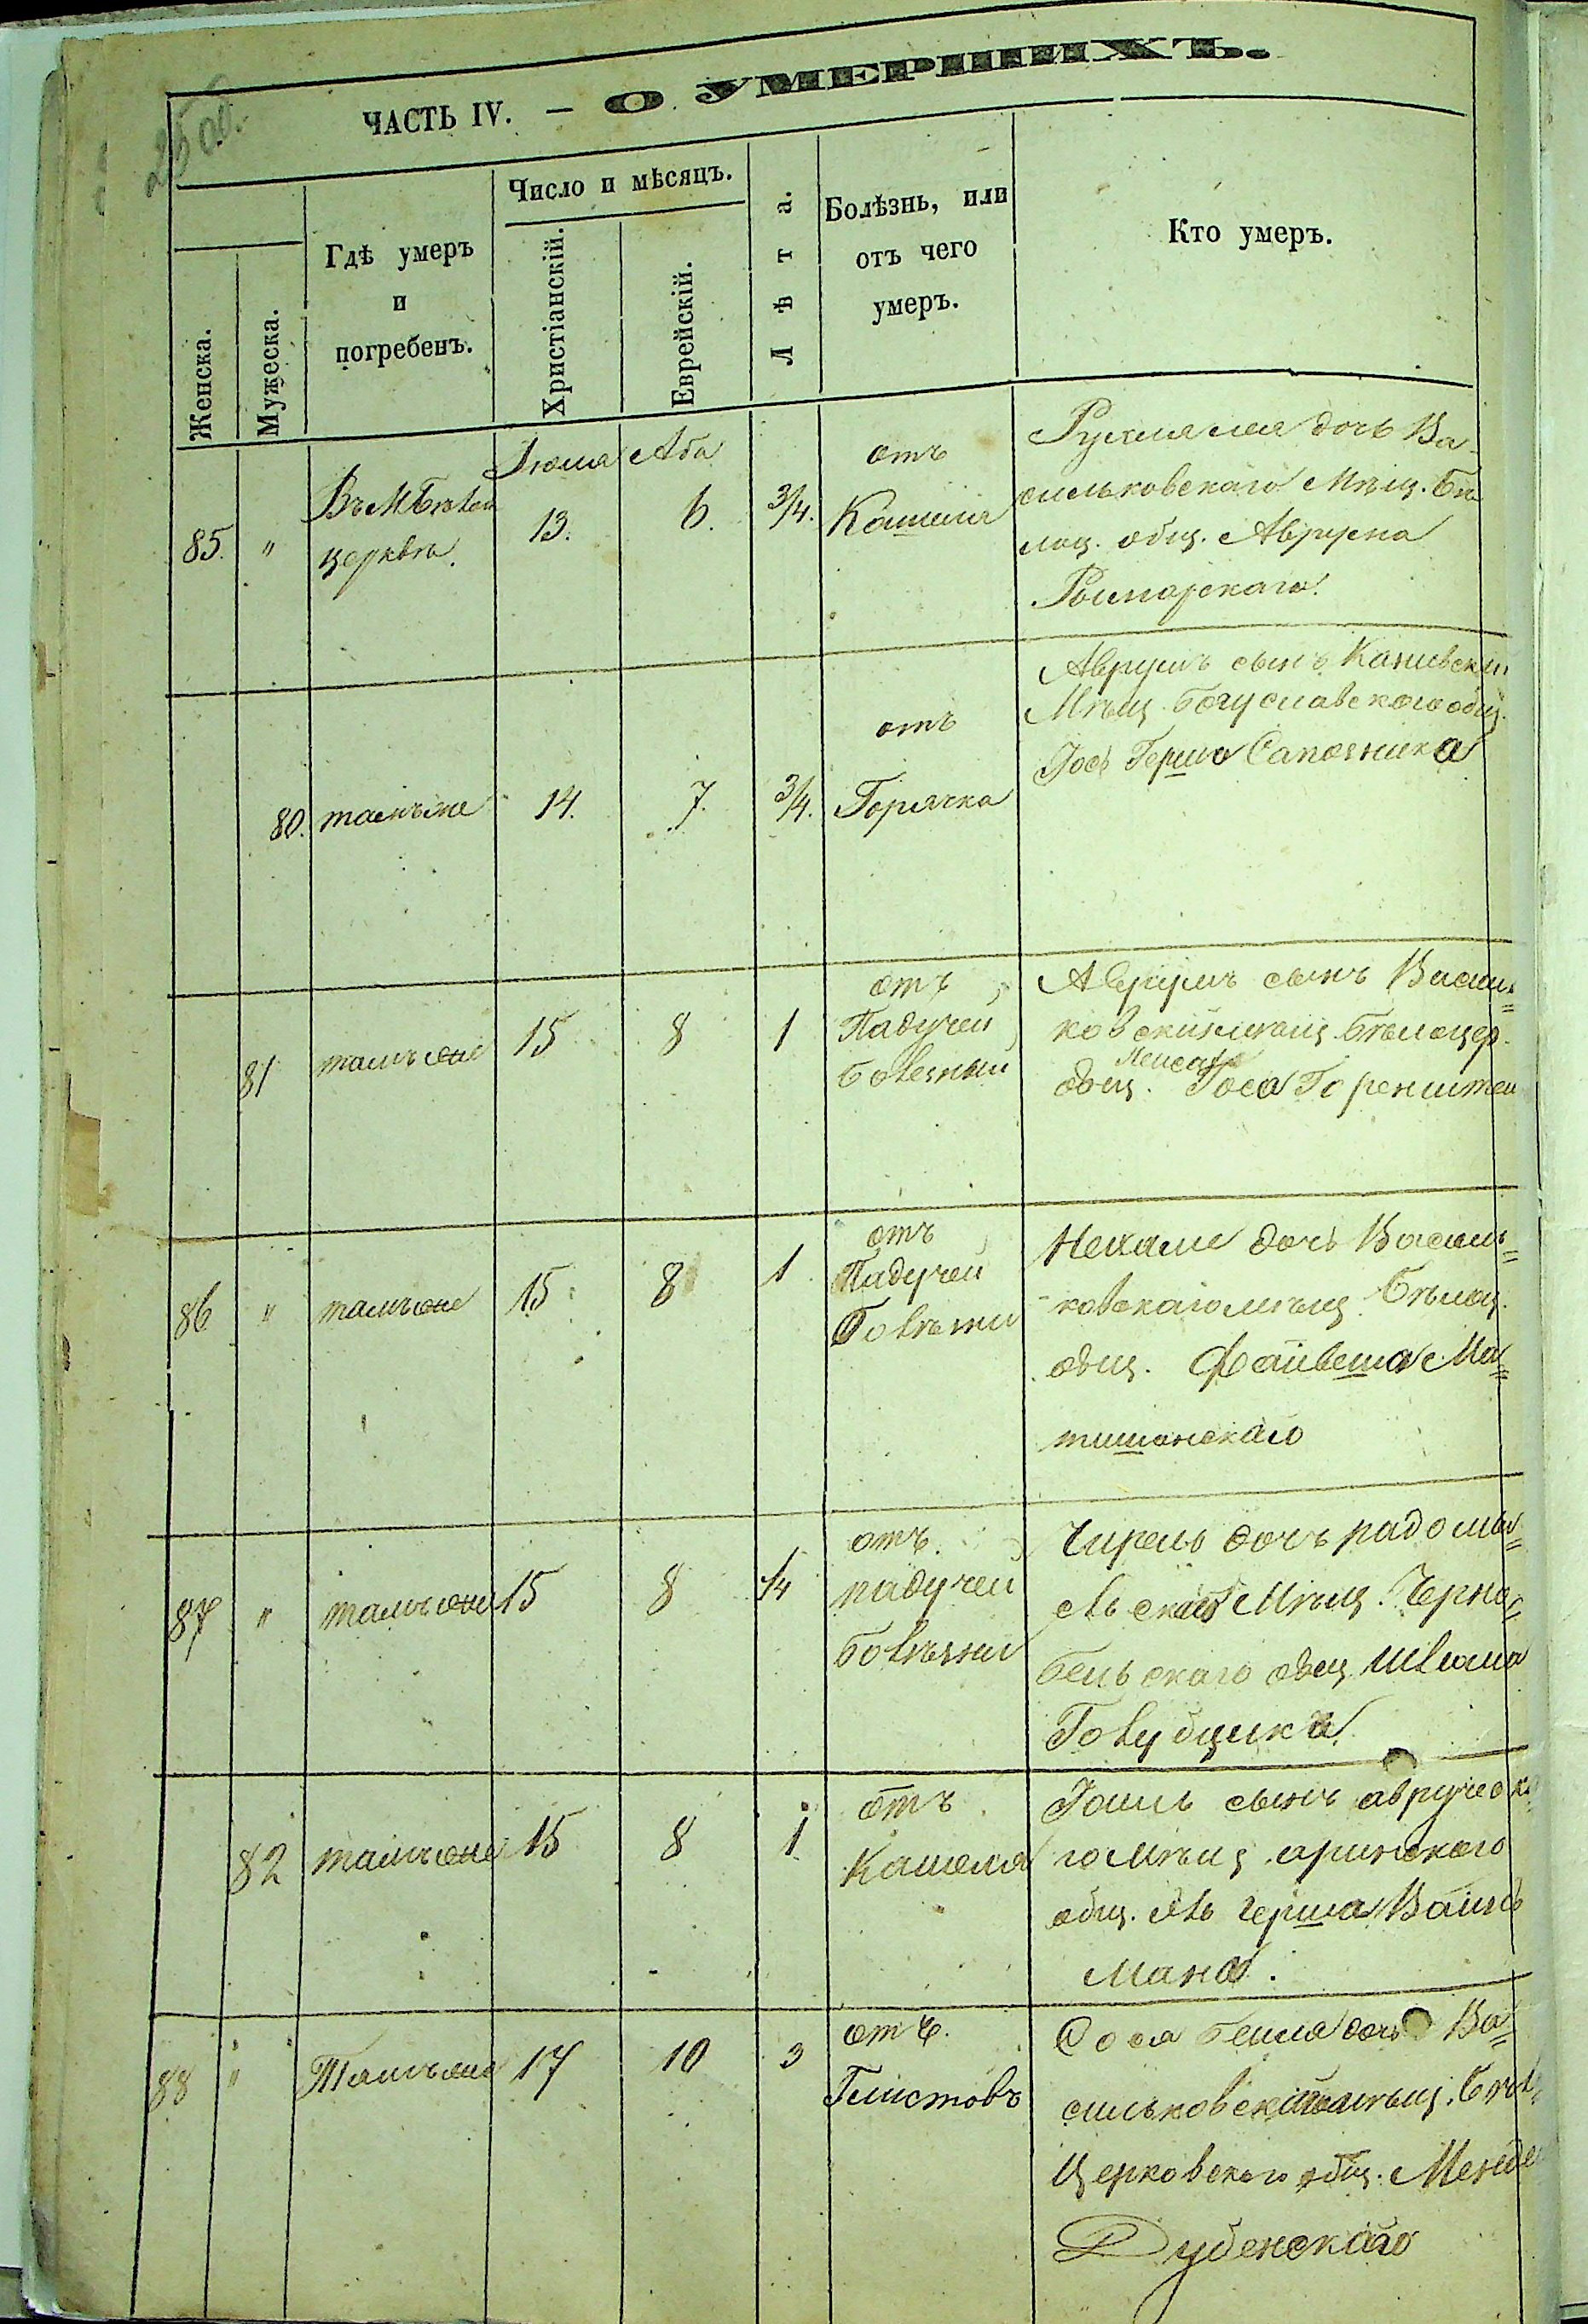 25 об.
ЧАСТЬ IV. — О УМЕРШИХЪ.
Женска.
Мужеска.
Гдѣ умеръ
и
погребенъ.
Число и мѣсяцъ.
Христіанскій.
Еврейскій.
Лѣта.
Болѣзнь, или
отъ чего
умеръ.
Кто умеръ.
85. " Въ М Бѣлой
церквѣ.
Іюля 13.
Аба 6.
3/4.
отъ
Кашеля
дочь Ва-
сильковскаго Мѣщ. Бѣ
лоц. общ. Аврума
80. тамъже 14. 7. 3/4.
отъ
Горячка
Аврумъ сынъ Каневски
Мѣщ. Богуславского общ.
Іось Герша Сапожника
81 тамъже 15 8 1
отъ
Падучей
Болезныи
Аврумъ сынъ Василь=
ковский мѣщ. Бѣлоцер.
общ. Іоса
86 " тамъже 15 8 1
отъ
Падучей
Болѣзни
Нехаме дочь Василь=
ковскаго мѣщ. Бѣлоц.
общ. Файвеша Ма=
тишанскаго
87 " тамъже 15 8 1/4
отъ
падучей
болѣзни
дочь радомы=
сльскаго Мѣщ. Черно=
бельского общ. Шлиома
Голубчика
82 тамъже 15 8 1
отъ
Кашеля
сынъ овручска
го мѣщ.
общ. Герша Вайнъ
мана.
88 " Тамъже 17 10 3
отъ
Глистовъ
Сося Бейла дочь Ва=
сильковский мѣщ. Бѣл=
Церковского общ. Менде
Дубенскаго